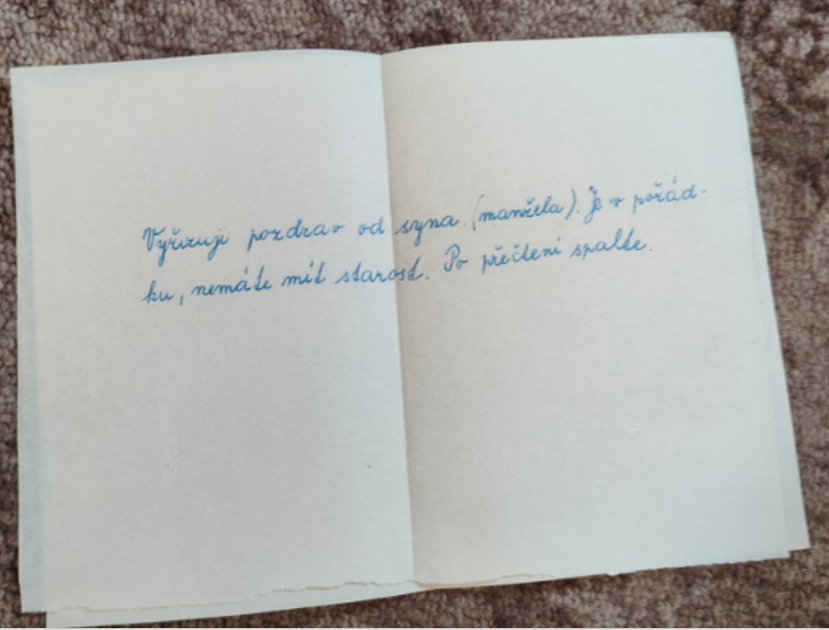 Vyřizuji pozdrav od syna (manžela). Je v pořád-
ku, nemáte mít starost. Po přečtení spalte.